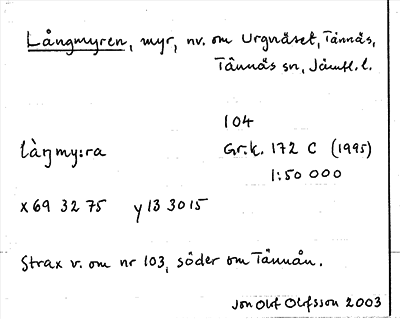 Långmyren, myr, nv. om Urgnäset, Tännäs,
Tännäs sn, Jämtl. l.
104
làŋmy:ra Gr.k. 172 C (1995)
1:50 000
x 69 32 75 y 13 30 15
Strax v. om nr 103, söder om Tännån.
Jon Olof Olofsson 2003